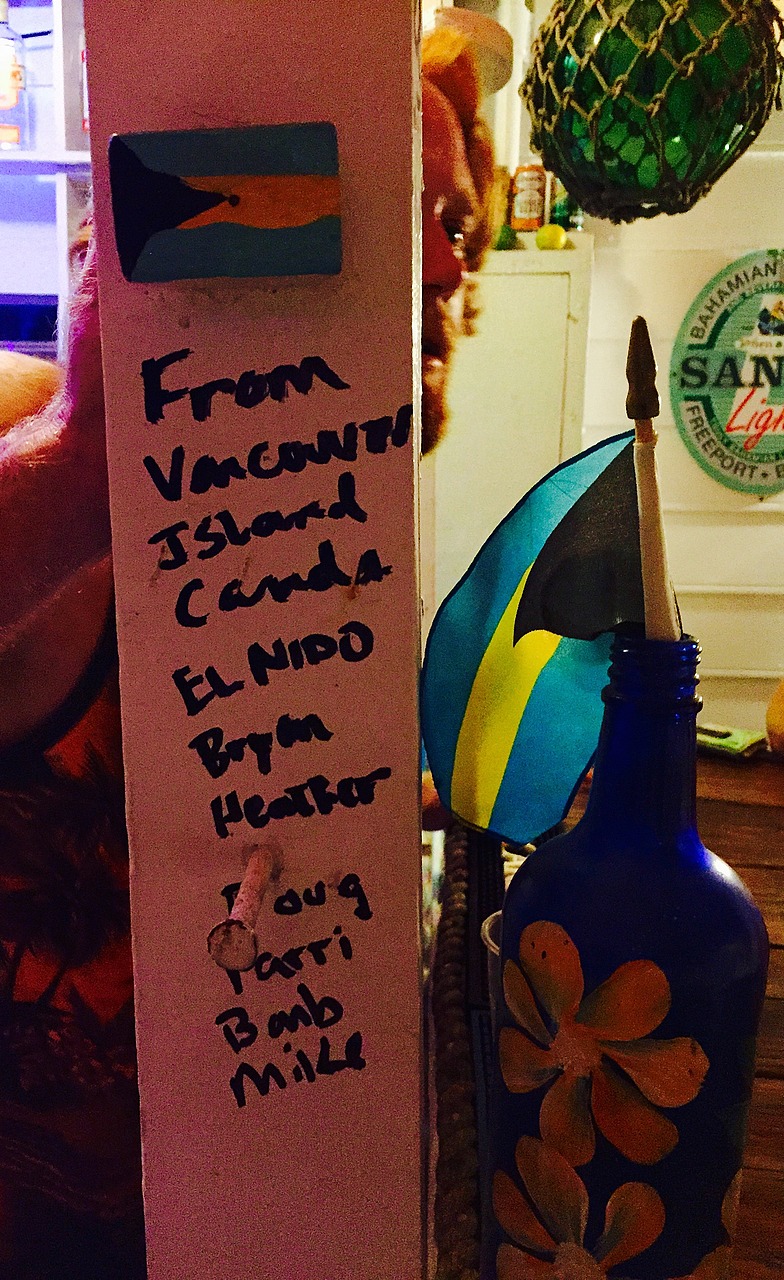 From
Vancouver
Island
Canda
EL NIDO
Bryan
Heather
Doug
Barb
Mike
BAHAMIAN
SAN
Ligh
FREEPORT •